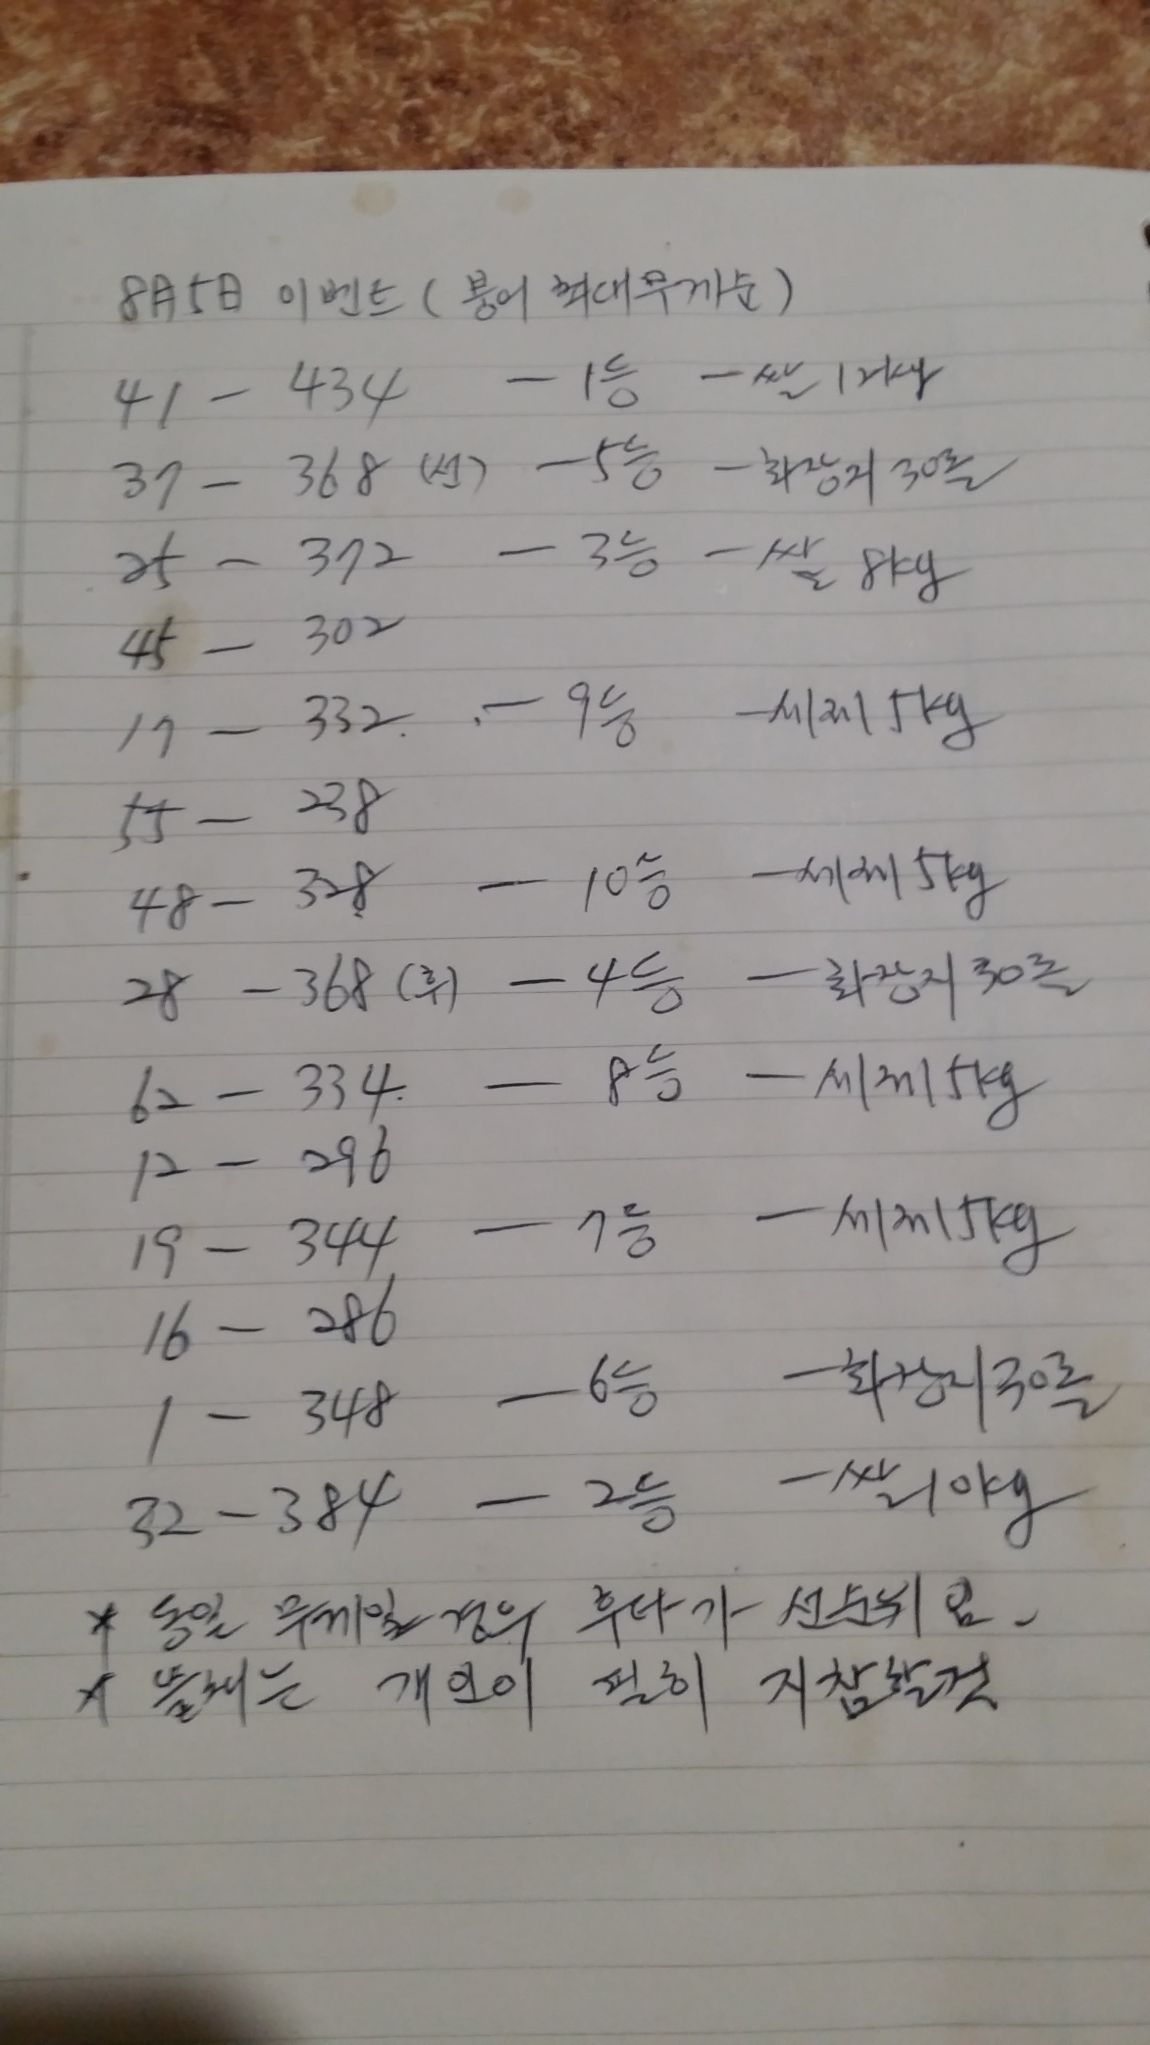 8月5日 이벤트 (붕어 최대무게순)
41 - 434 - 1등 - 쌀 12kg
37 - 368 (선) - 5등 - 화장지 30롤
25 - 372 - 3등 - 쌀 8kg
45 - 302
17 - 332. - 9등 - 세제 5kg
55 - 238
48 - 328 - 10등 - 세제 5kg
28 - 368 (후) - 4등 - 화장지 30롤
62 - 334. - 8등 - 세제 5kg
12 - 296
19 - 344 - 7등 - 세제 5kg
16 - 286
1 - 348 - 6등 - 화장지 30롤
32 - 384 - 2등 - 쌀 10kg
* 동일 무게일 경우 후타가 선순위 임.
* 뜰채는 개인이 필히 지참할것